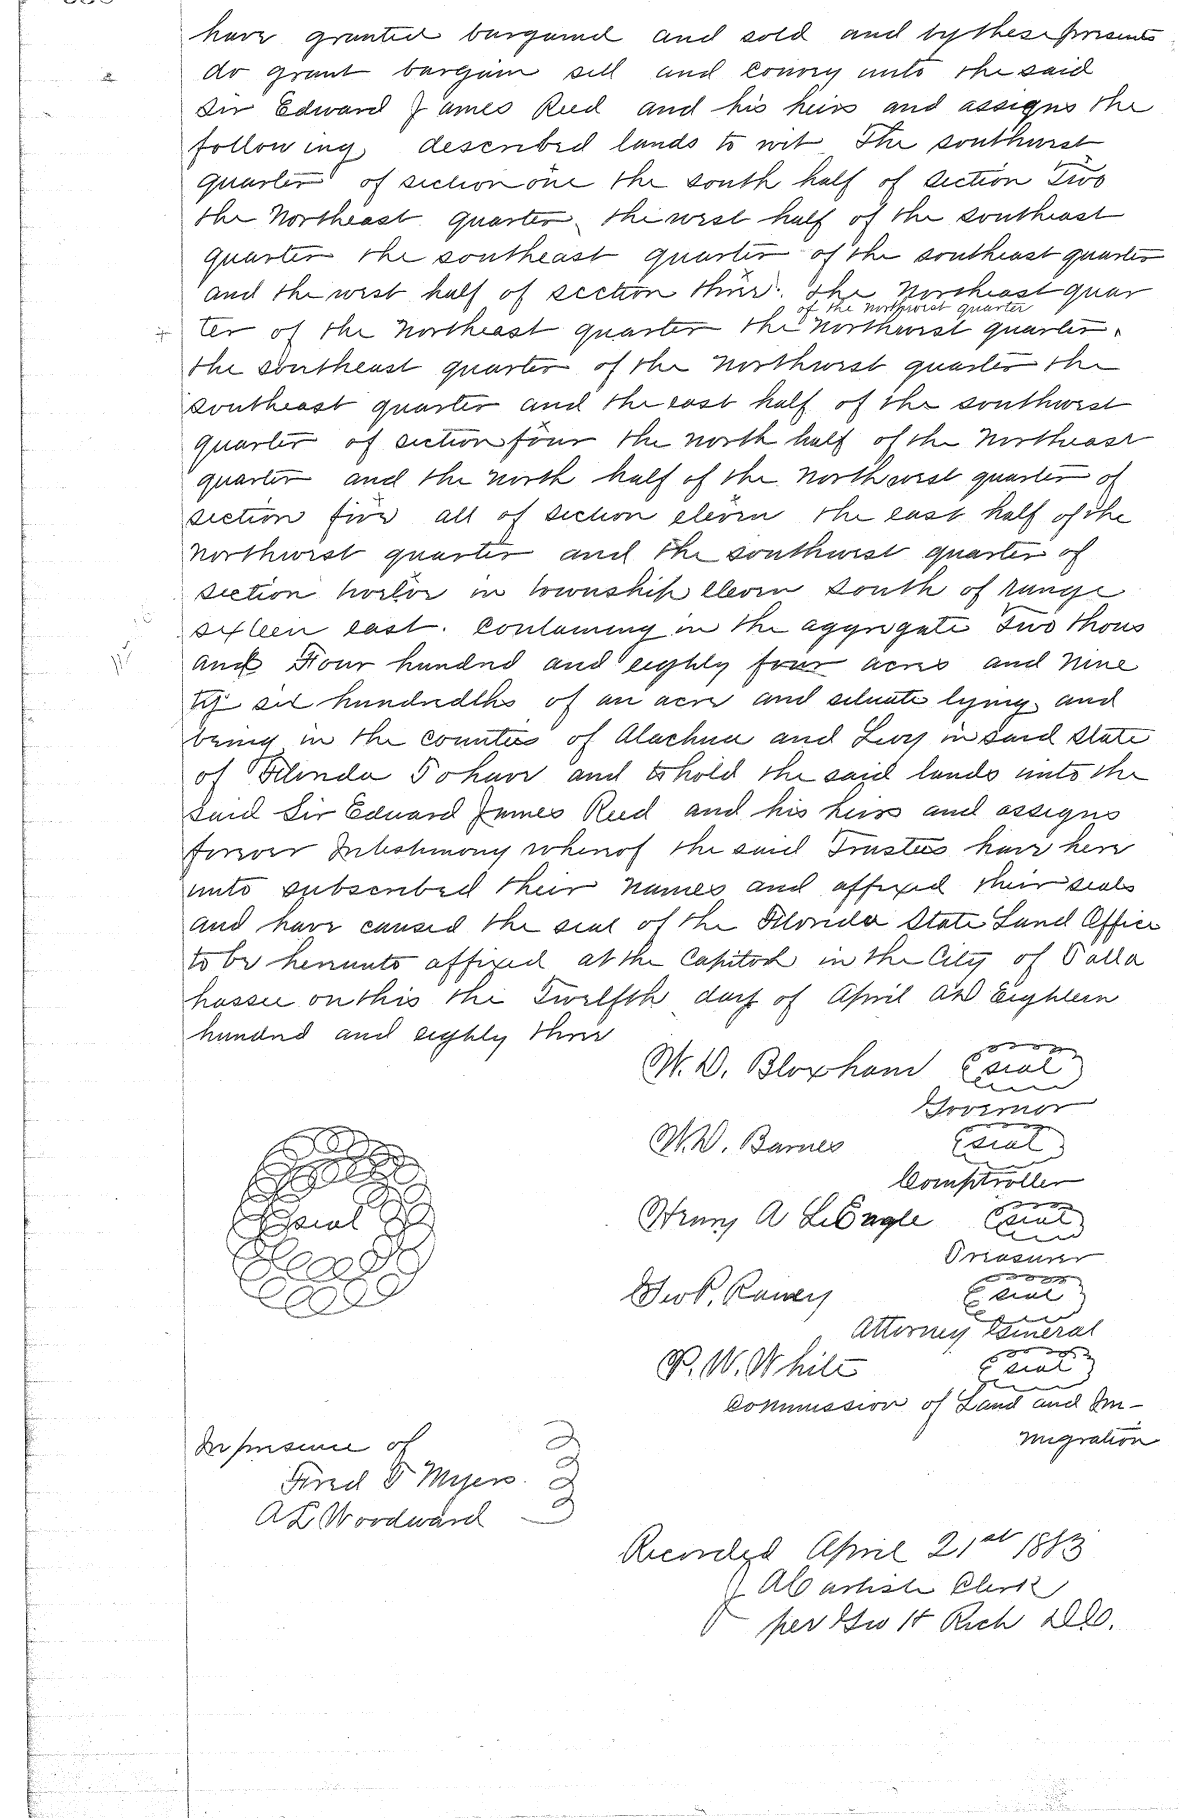 have granted bargained and sold and by these presents
do grant bargain sell and convey unto the said
Sir Edward James Reed and his heirs and assigns the
following described lands to wit The southwest
quarter of section one the south half of section Two
the Northeast quarter, the west half of the southeast
quarter the southeast quarter of the southeast quarter
and the west half of section three. the Northeast quar
of the northwest quarter
ter of the Northeast quarter the Northwest quarter.
the southeast quarter of the northwest quarter the
southeast quarter and the east half of the southwest
quarter of section four the north half of the Northeast
quarter and the north half of the Northwest quarter of
section five all of section eleven the east half of the
Northwest quarter and the southwest quarter of
section twelve in township eleven south of range
sixteen east. Containing in the aggregate Two thous
and Four hundred and eighty four acres and nine
ty six hundredths of an acre and situate lying and
being in the counties of Alachua and Levy in said State
of Florida To have and to hold the said lands unto the
said Sir Edward James Reed and his heirs and assigns
forever In testimony whereof the said Trustees have here
unto subscribed their names and affixed their seals
and have caused the seal of the Florida State Land Office
to be hereunto affixed at the Capitol in the City of Talla
hassee on this the Twelfth day of April AD Eighteen
hundred and eighty three
W. D. Bloxham seal
Governor
W. D. Barnes seal
Comptroller
seal
Henry A L'Engle seal
Treasurer
Geo P. Raney seal
Attorney General
P. W. White seal
Commission of Land and Im-
migration
In presence of
Fred T Myers.
A L Woodward
Recorded April 21st 1883
J A Carlisle Clerk
per Geo H Rich D.C.